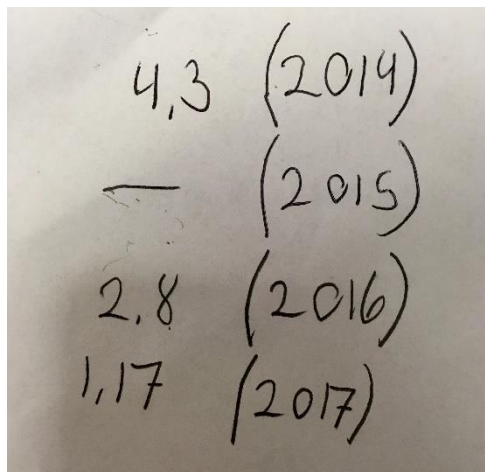 4,3 (2014)
— (2015)
2,8 (2016)
1,17 (2017)